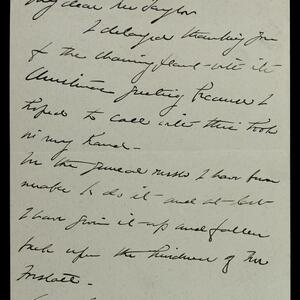 My dear Mr Taylor
I delayed thanking you
for the charming with its
Christmas greeting because I
hoped to call with this book
in my hand —
In the general rush I have been
unable to do it and at last
I have given it up and fallen
back upon the kindness of